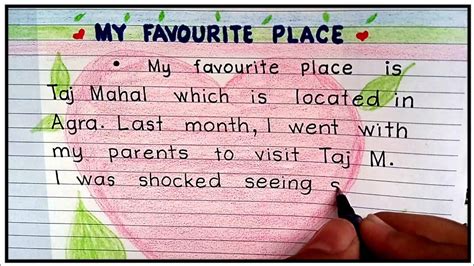 MY FAVOURITE PLACE
• My favourite place is
Taj Mahal which is located in
Agra. Last month, I went with
my parents to visit Taj M.
I was shocked seeing s